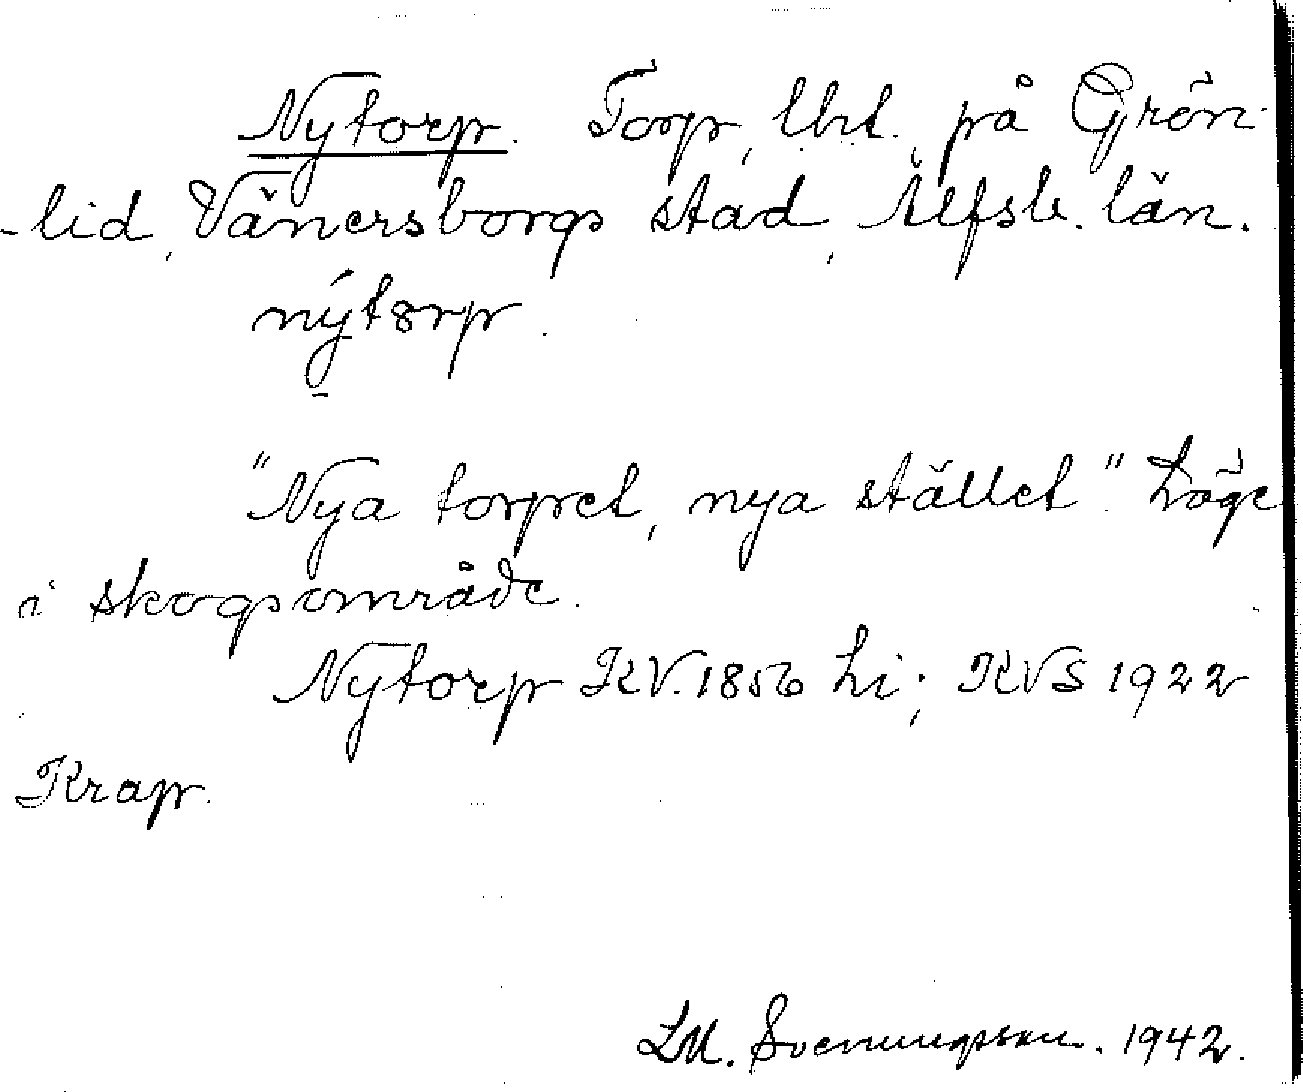 Nytorp. Torp, lht. på Grön-
-lid, Vänersborgs stad, Älfsb. län.
nýtorp.
"Nya torpet, nya stället". Läge
i skogsområde.
Nytorp KV. 1856 hi; KVS 1922
Krap.
LM. Svenungsson. 1942.